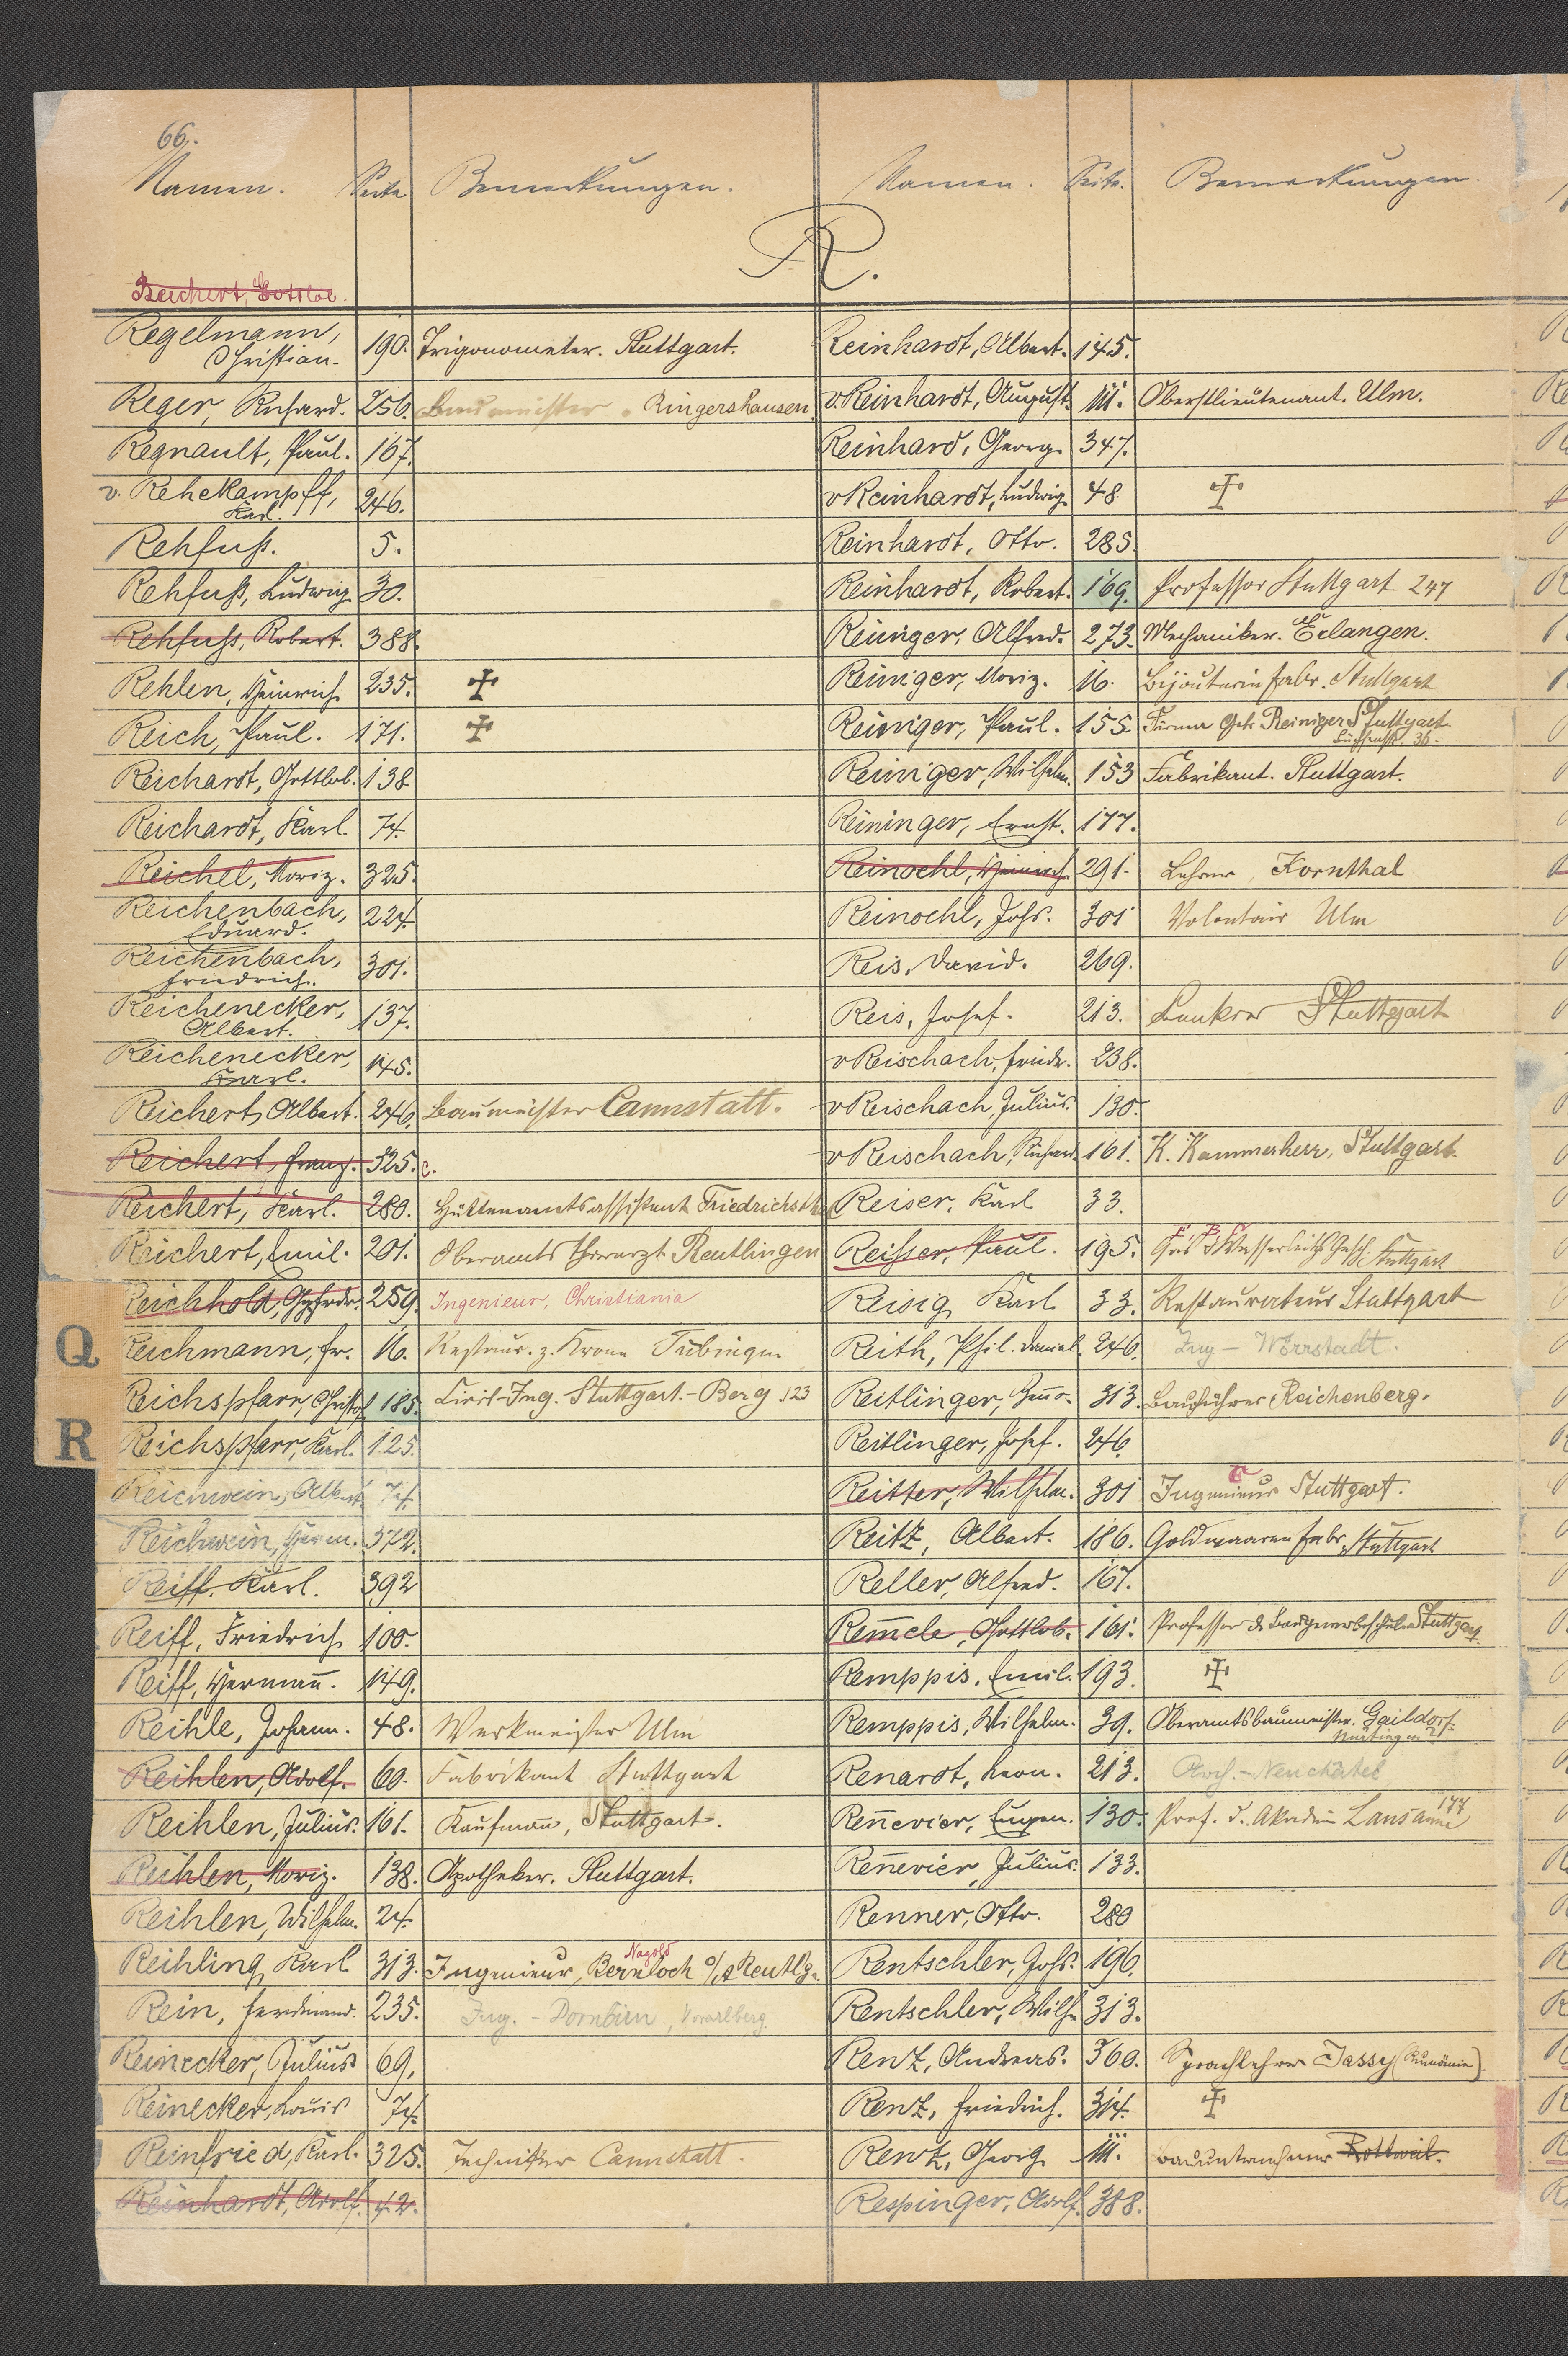 66.
Namen. Seite Bemerkungen. Namen. Seite. Bemerkungen
R.
Reichert, Gottlob.
Regelmann, Christian. 190. Trigonometer. Stuttgart.
Reger, Richard. 256. Baumeister. Ringershausen.
Regnault, Paul. 167.
v. Rehekampff, Karl. 246.
Rehfuß. 5.
Rehfuß, Ludwig. 30.
Rehfuss, Robert. 388.
Rehlen, Heinrich 235. ✝
Reich, Paul. 171. ✝
Reichardt, Gottlob. 138
Reichardt, Karl. 74.
Reichel, Moriz. 325.
Reichenbach, Eduard. 224.
Reichenbach, Friedrich. 301.
Reichenecker, Albert. 137.
Reichenecker, Karl. 145.
Reichert, Albert. 246. Baumeister Cannstatt.
Reichert, Franz. 325. c.
Reichert, Karl. 280. Hüttenamtsassistent Friedrichsthal
Reichert, Emil. 201. Oberamts thierarzt Reutlingen
Reichhold, 259. Ingenieur, Christiania
Reichmann, Fr. 16. Restaur. z. Krone Tübingen
Reichspfarr, Christof 185. Civil-Ing. Stuttgart.-Berg 123
Reichspfarr, Karl. 125.
Reichwein, Albert 74.
Reichwein, Herm. 372.
Reiff. Karl. 392
Reiff, Friedrich 100.
Reiff, Hermañ. 149.
Reihle, Johann. 48. Werkmeister Ulm
Reihlen, Adolf. 60. Fabrikant Stuttgart
Reihlen, Julius. 161. Kaufmañ, Stuttgart.
Reihlen, Moriz. 138. Apotheker. Stuttgart.
Reihlen, Wilhelm. 24.
Nagold
Reihling Karl 313. Ingenieur, Bernloch o/a Reutlg.
Rein, Ferdinand. 235. Ing. - Dornbirn, Vorarlberg.
Reinecker, Julius 69.
Reinecker, Louis 74.
Reinfried, Karl. 325. Techniker Cannstatt.
Reinhardt, Adolf. 42.
Q
R
Reinhardt, Albert. 145.
v. Reinhardt, August. 111. Oberstlieutenant. Ulm.
Reinhard, Georg 347.
v Reinhardt, Ludwig 48 ✝
Reinhardt, Otto. 285.
Reinhardt, Robert. 169. Professor Stuttgart 247
Reiniger, Alfred. 273. Mechaniker. Erlangen.
Reiniger, Moriz. 16. Bijouteriefabr. Stuttgart
Reiniger, Paul. 155. Firma Gebr. Reiniger Stuttgart
36.
Reiniger, Wilhelm. 153 Fabrikant. Stuttgart.
Reininger, Ernst. 177.
Reinoehl, Heinrich 291. Lehrer, Kornthal
Reinoehl, Johs. 301 Volontair Ulm
Reis, David. 269.
Reis, Josef. 213. Bankier Stuttgart
v Reischach, Friedr. 238.
v Reischach, Julius. 130.
v Reischach, Richard. 161. K. Kammerherr, Stuttgart.
Reiser, Karl 33.
Reisser, Paul. 195. Stuttgart
Reisig Karl 33. Restaurateur Stuttgart
Reith, Phil. Daniel. 246. Ing - Wörrstadt.
Reitlinger, 313. Bauführer Reichenberg.
Reitlinger, Josef. 246
Reitter, Wilhelm. 301 Ingenieur Stuttgart.
Reitz, Albert. 186. Goldwaaren fabr. Stuttgart
Reller, Alfred. 167.
Rem̄ele, Gottlob. 161. Professor d. Baugewerbeschule Stuttgart
Remppis, Emil. 193. ✝
Remppis, Wilhelm. 39. Oberamtsbaumeister. Gaildorf.
Nürtingen
Renardt, Leon. 213. Arch. - Neuchatel
Reñevier, Eugen. 130. Prof. d. Akademie Lausanne 177
Reñevier, Julius. 133.
Renner, Otto. 280
Rentschler, Johs. 196.
Rentschler, Wilh. 313.
Renz, Andreas. 360. Sprachlehrer Jassy (Rumänien).
Renz, Friedrich. 314. ✝
Renz, Georg 111. Bauunternehmer Rottweil.
Respinger, Adolf. 388.